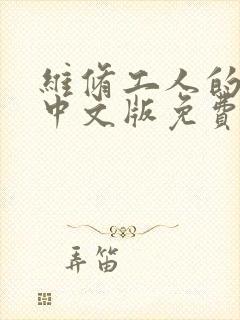 維脩工人的
中文版免費
弄笛